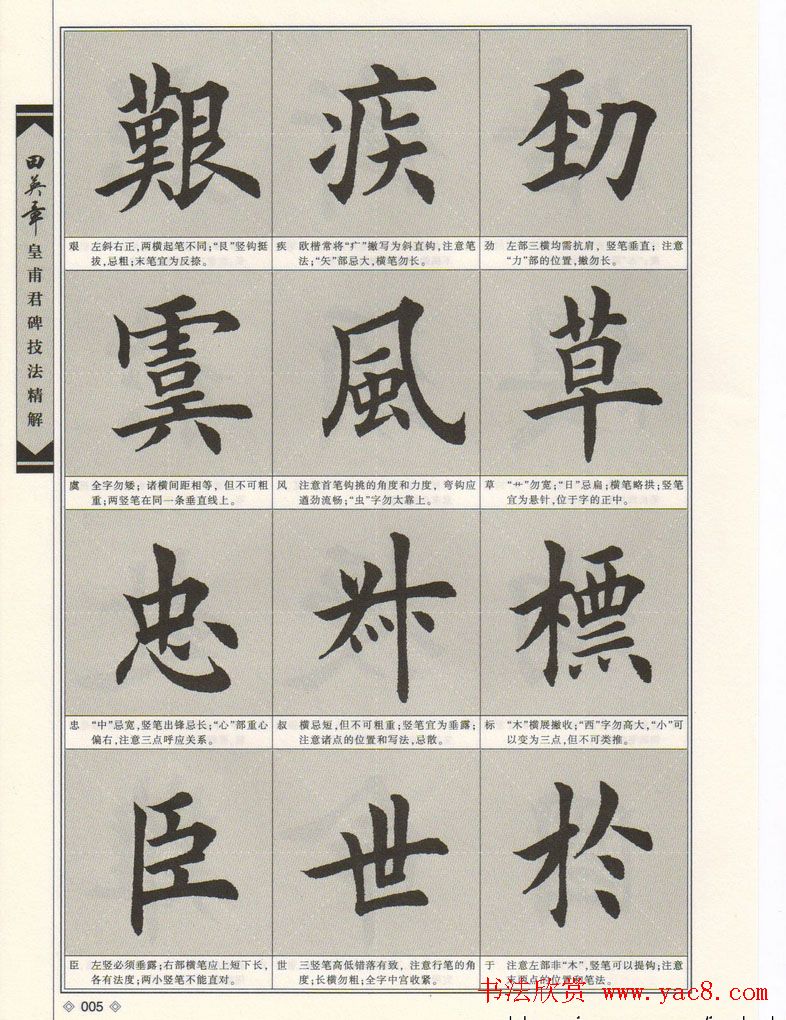 田英章
皇甫君碑技法精解
勁
劲 左部三横均需抗肩，竖笔垂直；注意
“力”部的位置，撇勿长。
草
草 “艹”勿宽；“日”忌扁；横笔略拱；竖笔
宜为悬针，位于字的正中。
標
标 “木”横展撇收；“西”字勿高大，“小”可
以变为三点，但不可类推。
於
于 注意左部非“木”，竖笔可以提钩；注意
末两点的位置和笔法。
疾
疾 欧楷常将“疒”撇写为斜直钩，注意笔
法；“矢”部忌大，横笔勿长。
風
风 注意首笔钩挑的角度和力度，弯钩应
遒劲流畅；“虫”字勿太靠上。
叔
叔 横忌短，但不可粗重；竖笔宜为垂露；
注意诸点的位置和写法，忌散。
世
世 三竖笔高低错落有致，注意行笔的角
度；长横勿粗；全字中宫收紧。
艱
艰 左斜右正，两横起笔不同；“艮”竖钩挺
拔，忌粗；末笔宜为反捺。
虞
虞 全字勿矮；诸横间距相等，但不可粗
重；两竖笔在同一条垂直线上。
忠
忠 “中”忌宽，竖笔出锋忌长；“心”部重心
偏右，注意三点呼应关系。
臣
臣 左竖必须垂露；右部横笔应上短下长，
各有法度；两小竖笔不能直对。
005
书法欣赏 www.yac8.com